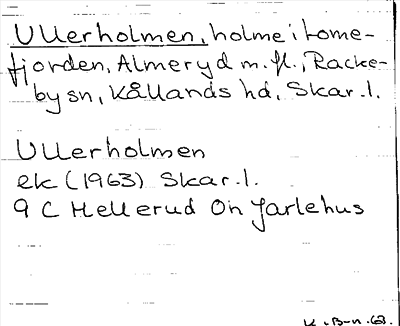 Ullerholmen, holme i Lome-
fjorden, Almeryd m.fl., Racke-
by sn, Kållands hd, Skar.l.
Ullerholmen
ek (1963) Skar.l.
9 C Hellerud On Jarlehus
K. B-n. 63.